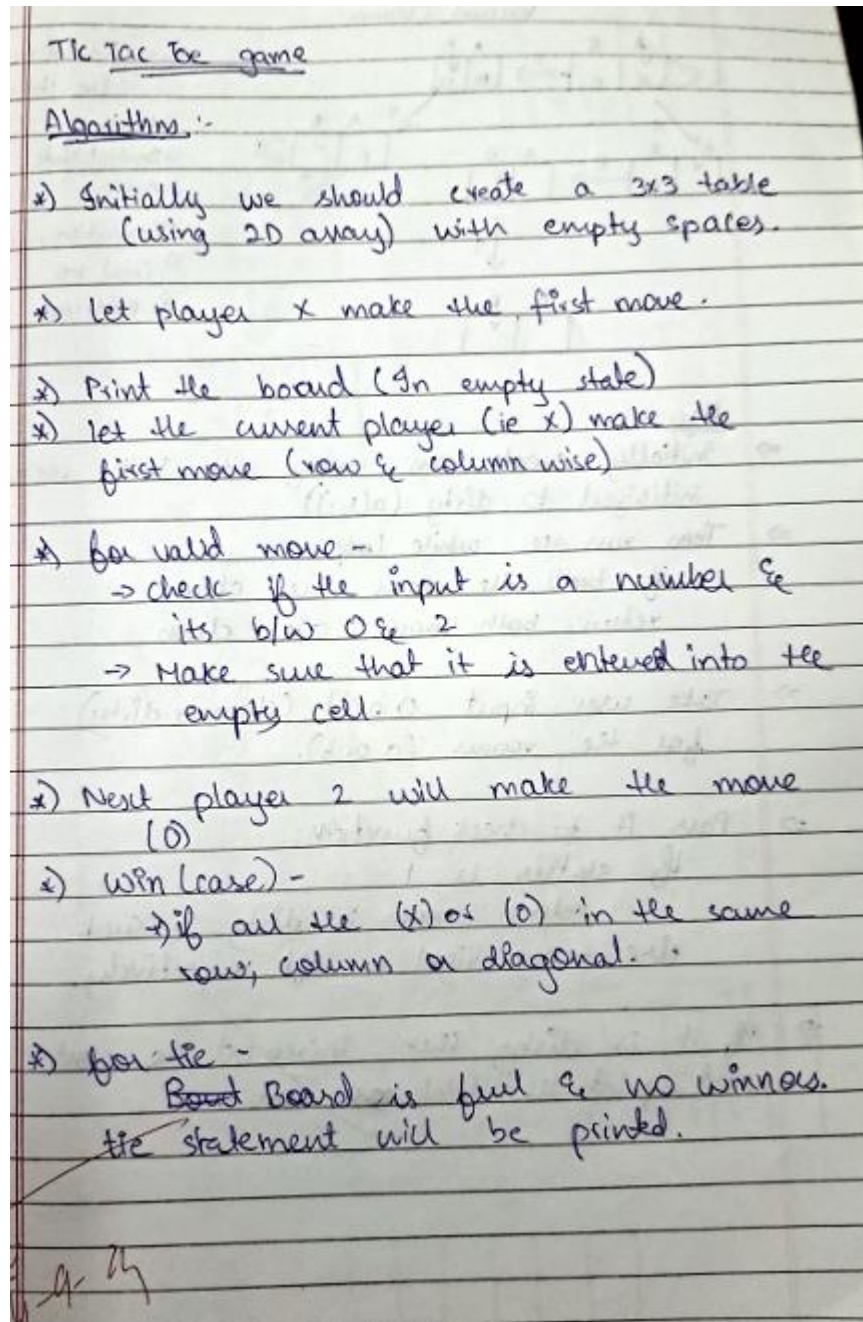 Tic Tac Toe game
Algorithm :-
*) Initially we should create a 3x3 table
(using 2D array) with empty spaces.
*) let player X make the first move.
*) Print the board (In empty state)
*) let the current player (ie X) make the
first move (row & column wise)
*) for valid move -
→ check if the input is a number &
its b/w 0 & 2
→ Make sure that it is entered into the
empty cell.
*) Next player 2 will make the move
(O)
*) Win (case) -
→ if all the (X) or (O) in the same
row, column or diagonal.
*) for tie -
Board is full & no winners.
tie statement will be printed.